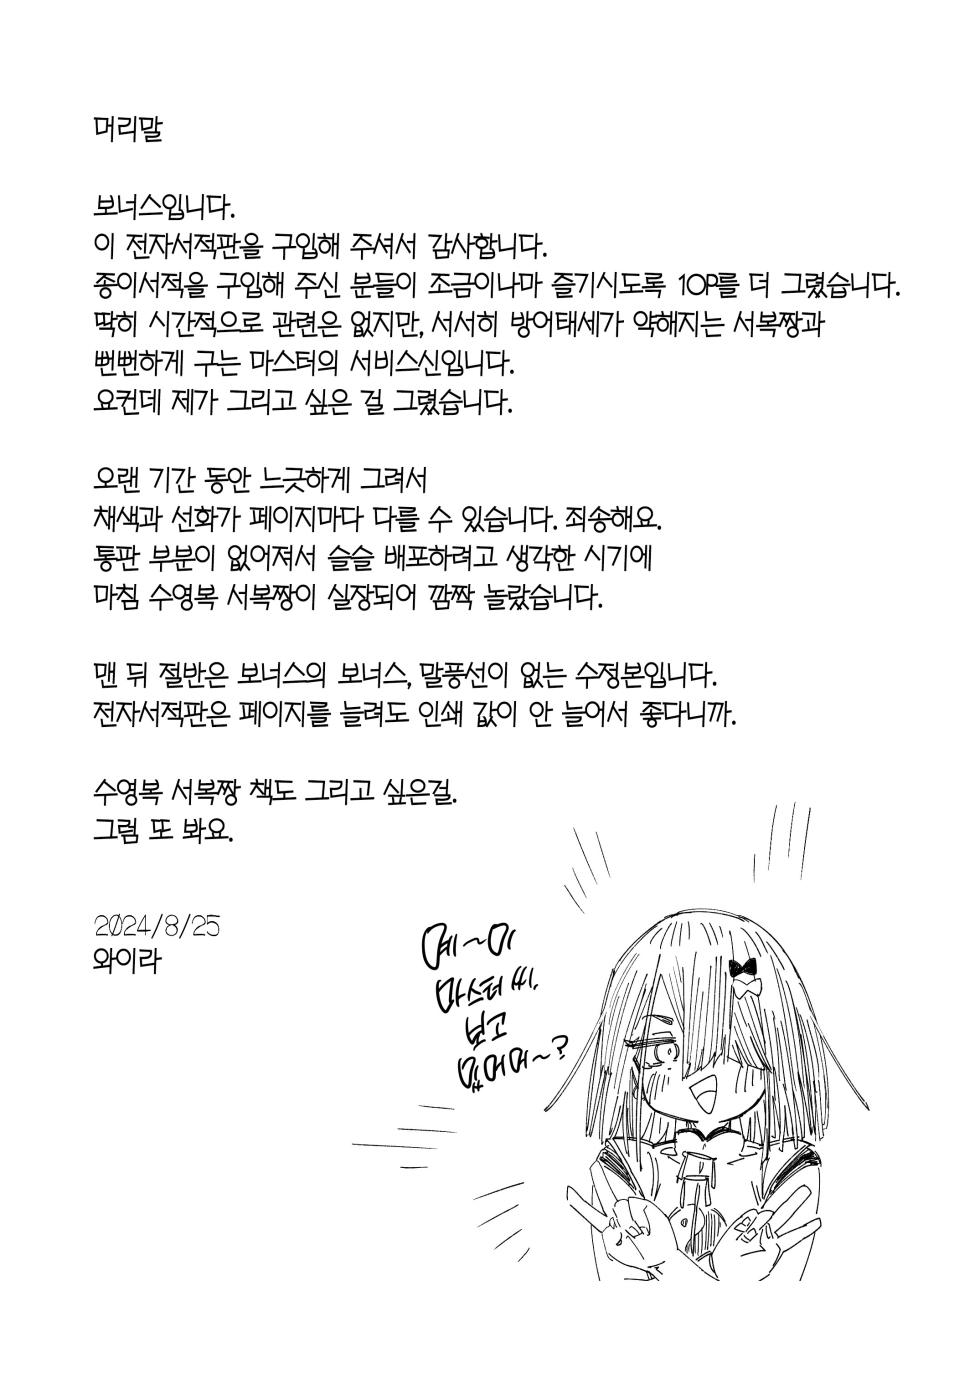 머리말
보너스입니다.
이 전자서적판을 구입해 주셔서 감사합니다.
종이서적을 구입해 주신 분들이 조금이나마 즐기시도록 10P를 더 그렸습니다.
딱히 시간적으로 관련은 없지만, 서서히 방어태세가 약해지는 서복짱과
뻔뻔하게 구는 마스터의 서비스신입니다.
요컨데 제가 그리고 싶은 걸 그렸습니다.
오랜 기간 동안 느긋하게 그려서
채색과 선화가 페이지마다 다를 수 있습니다. 죄송해요.
통판 부분이 없어져서 슬슬 배포하려고 생각한 시기에
마침 수영복 서복짱이 실장되어 깜짝 놀랐습니다.
맨 뒤 절반은 보너스의 보너스, 말풍선이 없는 수정본입니다.
전자서적판은 페이지를 늘려도 인쇄 값이 안 늘어서 좋다니까.
수영복 서복짱 책도 그리고 싶은걸.
그럼 또 봐요.
2024/8/25
와이라
예~이
마스터 씨,
보고
있어~?